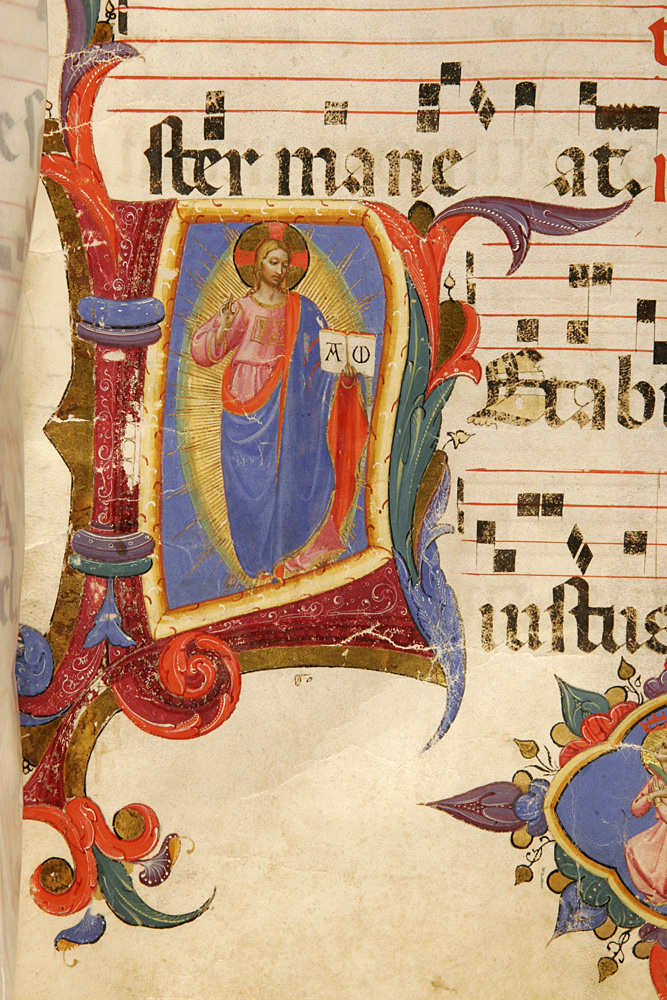 ster mane at.
A Ꞷ
LEtabi
iustus